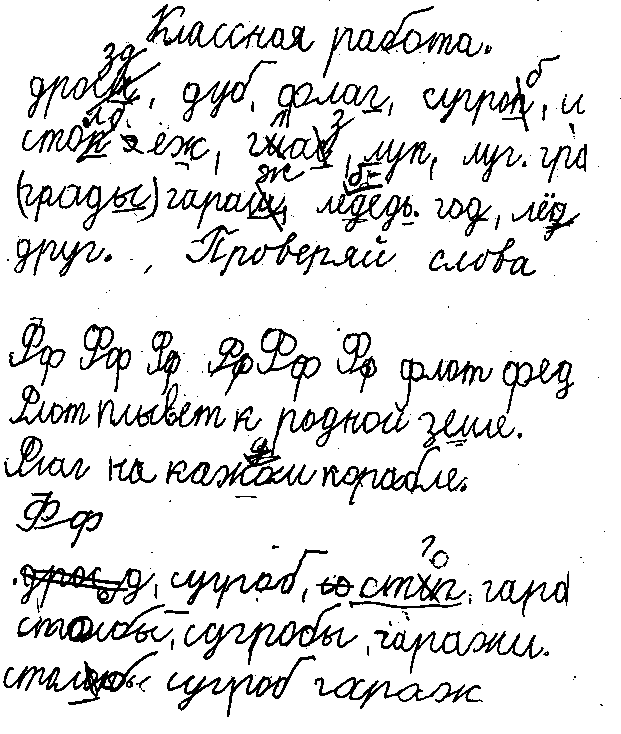 Классная работа.
дрозд, дуб, флаг, сугроб, и
столб ёж, глаз, лук, луг. гра
(грады) гараж, лебедь. год, лёд
друг. , Проверяй слова
Фф Фф Фф Фф Фф Фф флот фед
Флот плывет к родной земле.
Флаг на каждом корабле.
Фф
сугроб, стлп, гара
столбы, сугробы, гаражи.
сугроб гараж